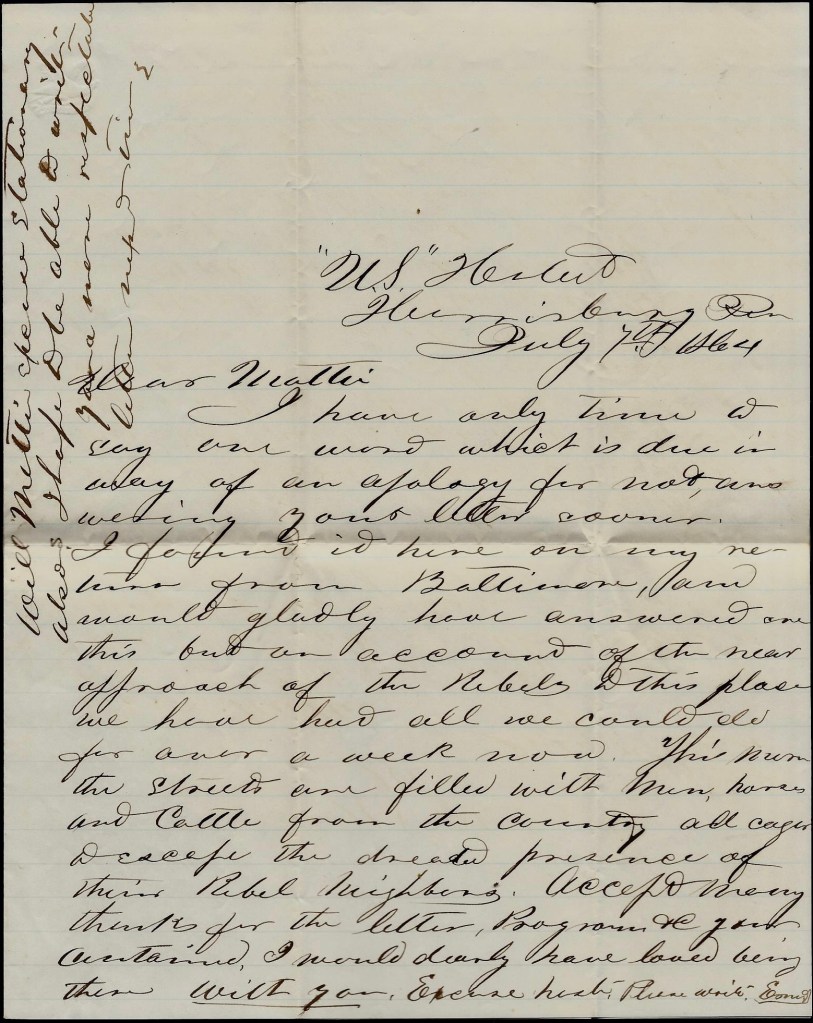 "U.S." Hotel
Harrisburg Pen
July 7th 1864
Dear Mattie
I have only time to
say one word which is due in
way of an apology for not, ans
wering your letter sooner.
I found it here on my re-
turn from Baltimore, and
would gladly have answered ere
this but on account of the near
approach of the Rebels to this place
we have had all we could do
for over a week now. This morn
the streets are filled with Men, horses
and Cattle from the country all eager
to escape the dreaded presence of
their Rebel Neighbors. Accept many
thanks for the letter, Program &c your
contained, I would dearly have loved being
there with you. Excuse hast. Please write.
Will Mattie excuse stationary
also I hope to be able to write
you a more respectable
letter next time